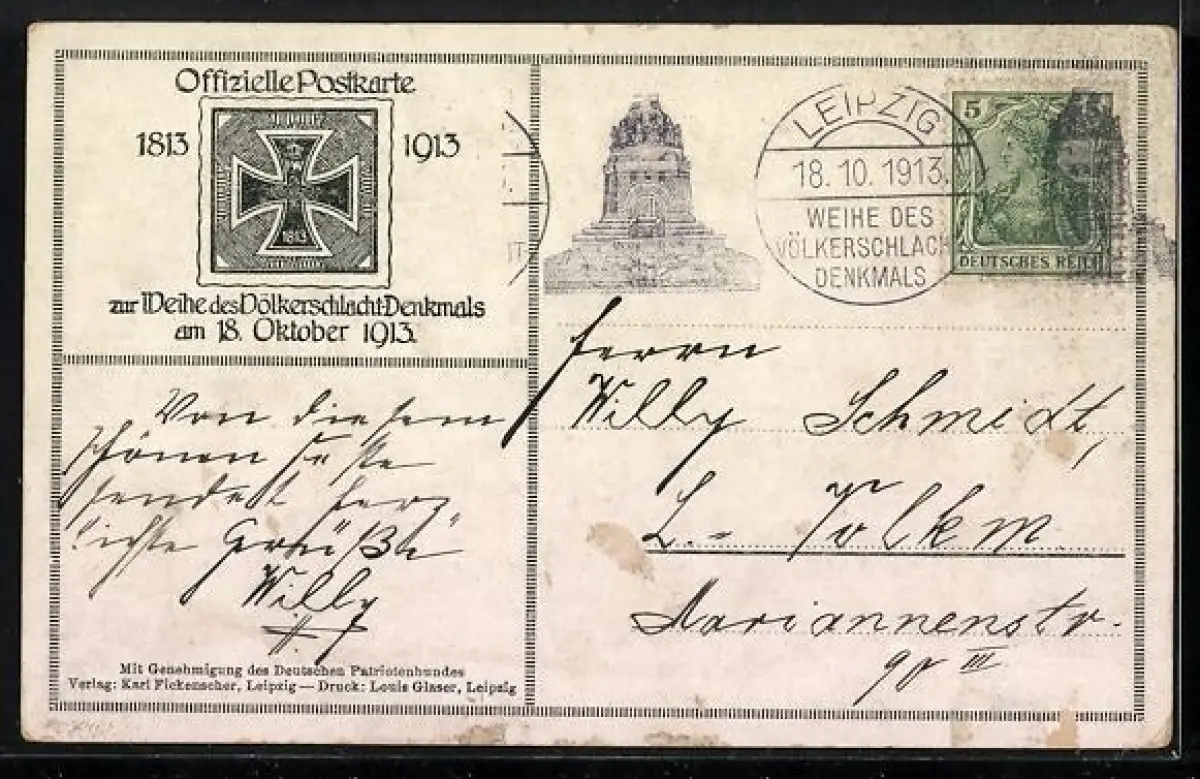 Offizielle Postkarte
1813 1913
1813
zur Weihe des Völkerschlacht-Denkmals
am 18. Oktober 1913.
LEIPZIG
18.10.1913.
WEIHE DES
VÖLKERSCHLACH
DENKMALS
5
DEUTSCHES REICH
Von diesem
schönen Feste
sendet herz
lichste Grüße
Willy
Herrn
Willy Schmidt,
L.- Volkm.
Mariannenstr.
90 III
Mit Genehmigung des Deutschen Patriotenbundes
Verlag: Karl Fickenscher, Leipzig — Druck: Louis Glaser, Leipzig